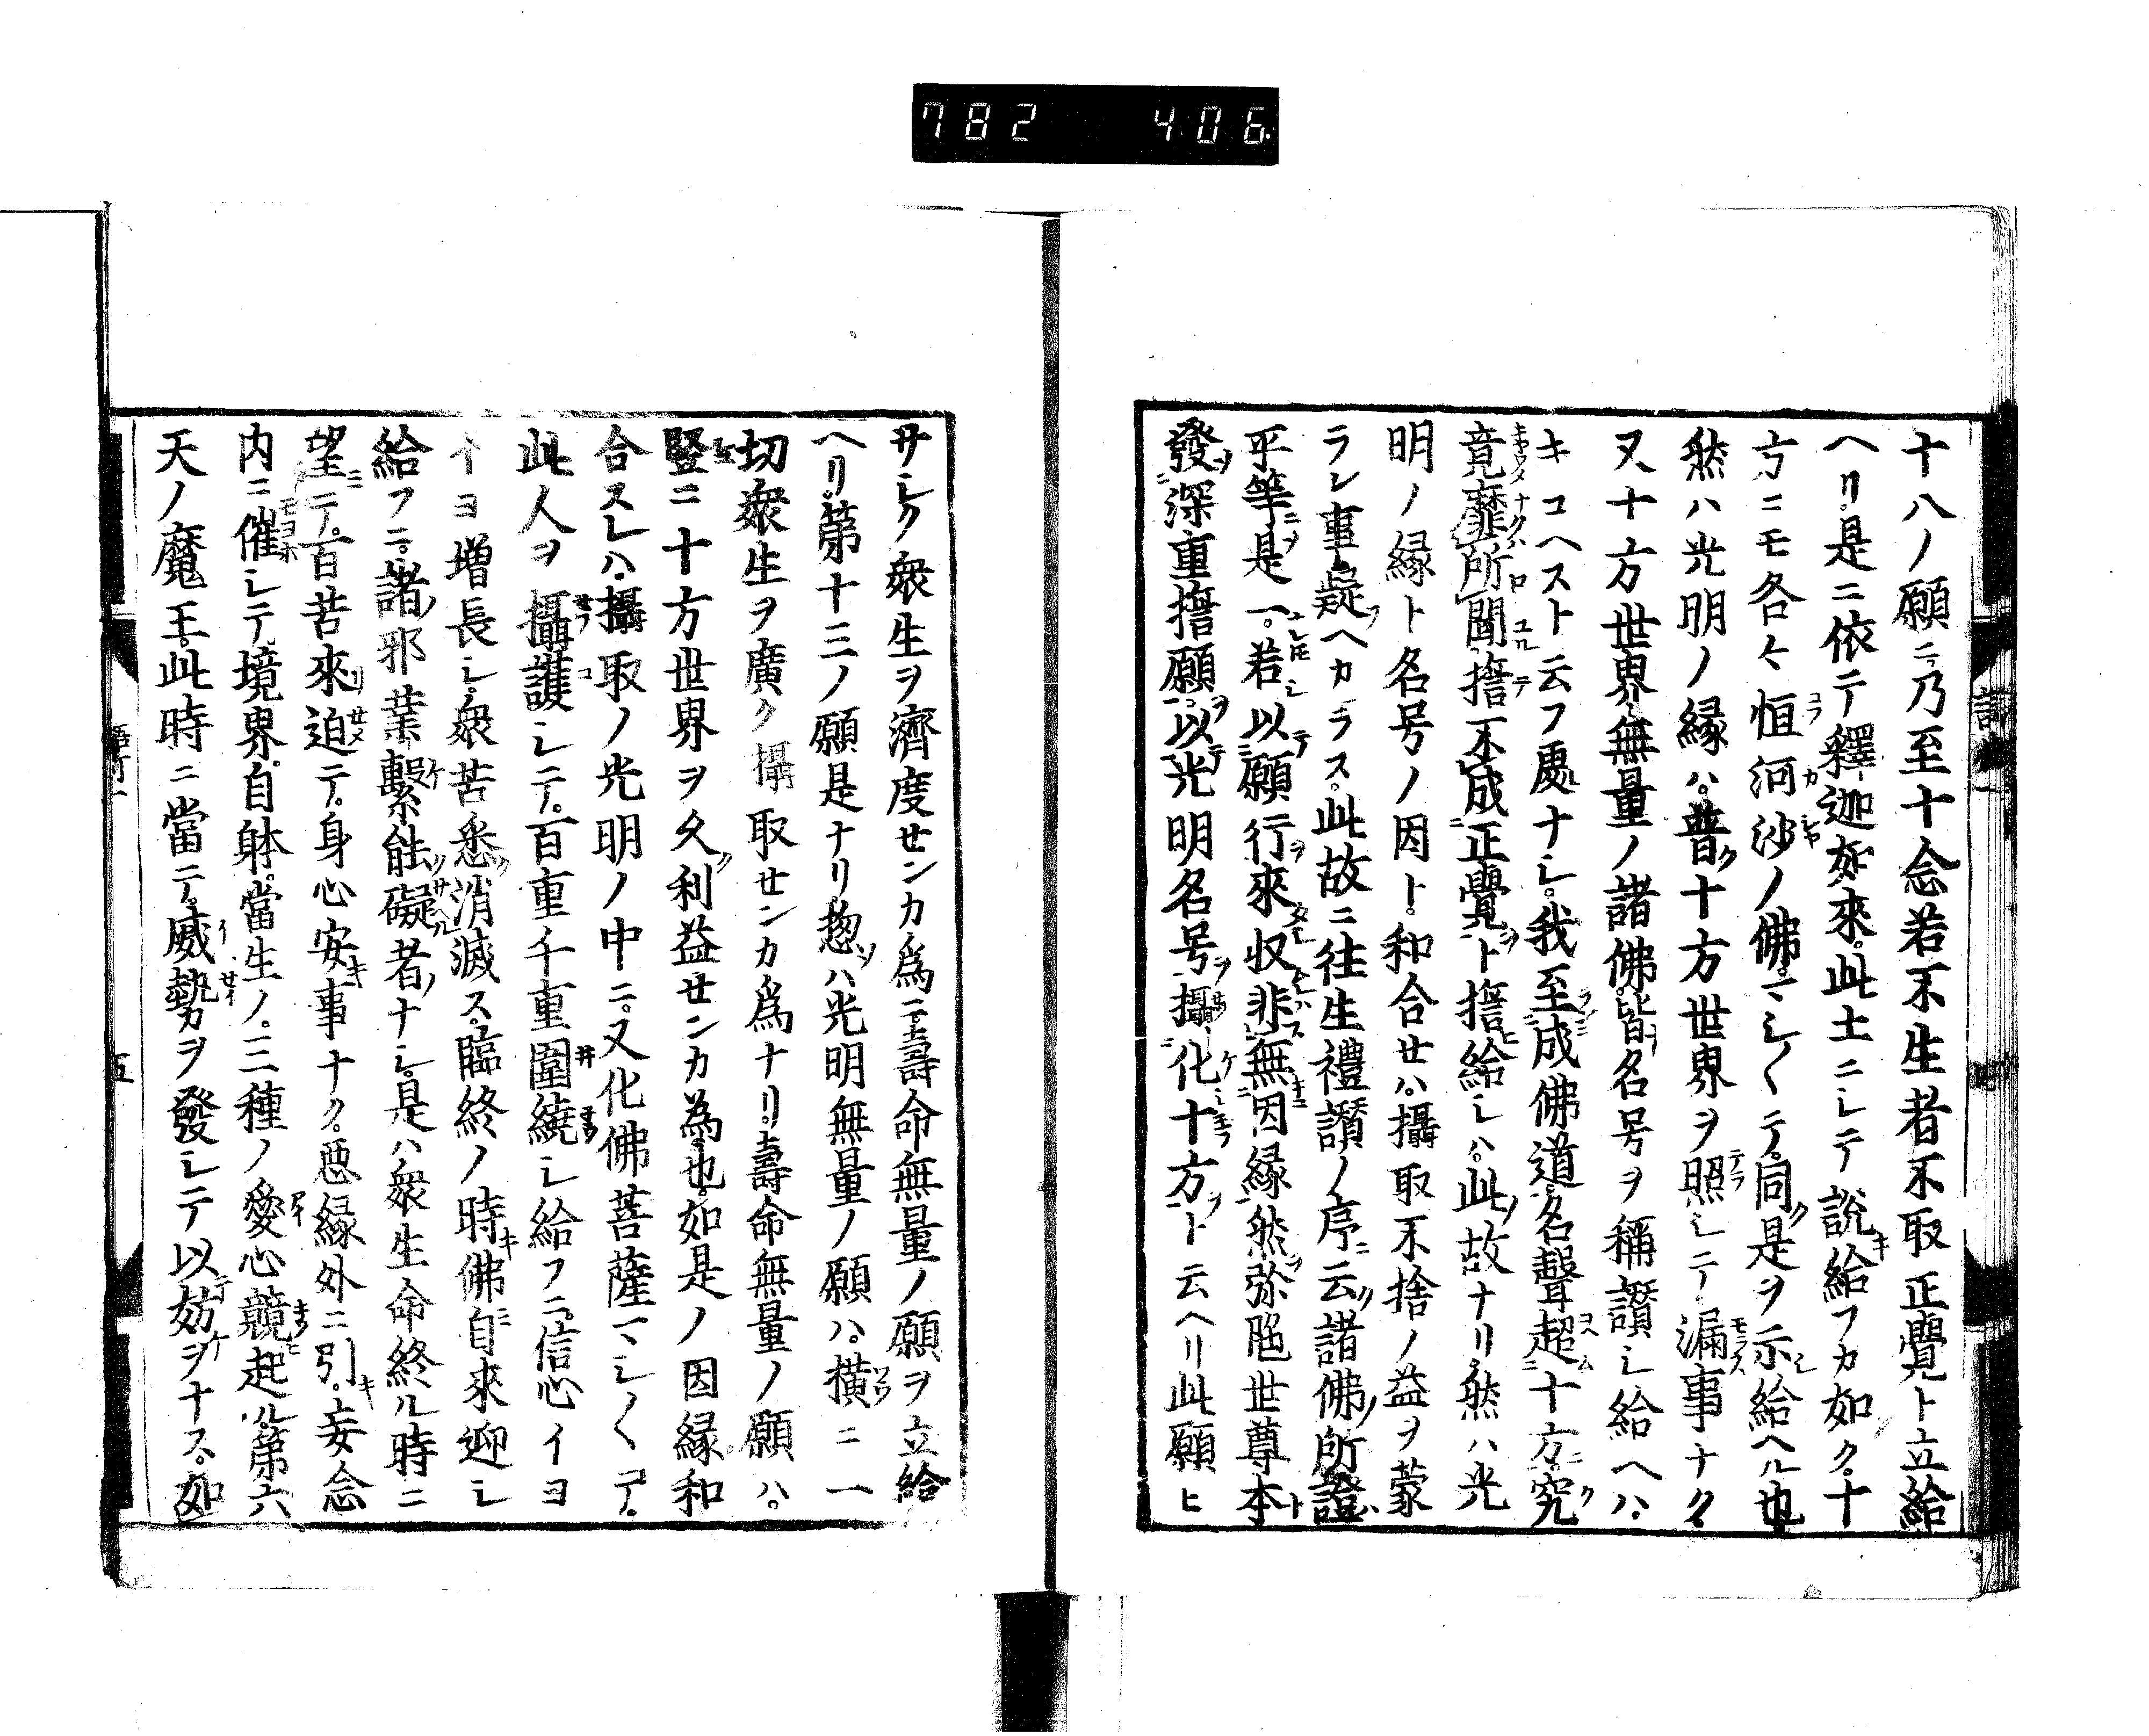 782 406
十八ノ願ニ乃至十念若不生者不取正覺ト立給
ヘリ是ニ依テ釋迦如來此土ニシテ說給フカ如ク十
方ニモ各々恒河沙ノ佛マシ〱テ同是ヲ示給ヘル也
然ハ光明ノ縁ハ普ク十方世界ヲ照シテ漏事ナク
又十方世界無量ノ諸佛皆名号ヲ稱讚シ給ヘハ
キコヘスト云フ處ナシ我至成佛道名聲超十方究
竟靡所聞誓不成正覺ト誓給シハ此故ナリ然ハ光
明ノ縁ト名号ノ因ト和合セハ攝取不捨ノ益ヲ蒙
ラン事疑ヘカラス此故ニ往生禮讚ノ序ニ云諸佛所證
平等是一若以願行來収非無因縁然弥陁世尊本
發深重誓願以光明名号攝化十方ト云ヘリ此願ヒ
サシク衆生ヲ濟度センカ爲ニ壽命無量ノ願ヲ立給
ヘリ第十三ノ願是ナリ惣ハ光明無量ノ願ハ橫ニ一
切衆生ヲ廣ク攝取センカ爲ナリ壽命無量ノ願ハ
竪ニ十方世界ヲ久利益センカ為也如是ノ因縁和
合スレハ攝取ノ光明ノ中ニ又化佛菩薩マシ〱テ
此人ヲ攝護シテ百重千重圍繞シ給フニ信心イヨ
イヨ増長シ衆苦悉消滅ス臨終ノ時佛自來迎シ
給フニ諸邪業繫能礙者ナシ是ハ衆生命終ル時ニ
望テ百苦來迫テ身心安事ナク悪縁外ニ引妄念
内ニ催シテ境界自躰當生ノ三種ノ愛心競起ル第六
天ノ魔王此時ニ當テ威勢ヲ發シテ以妨ヲナス如